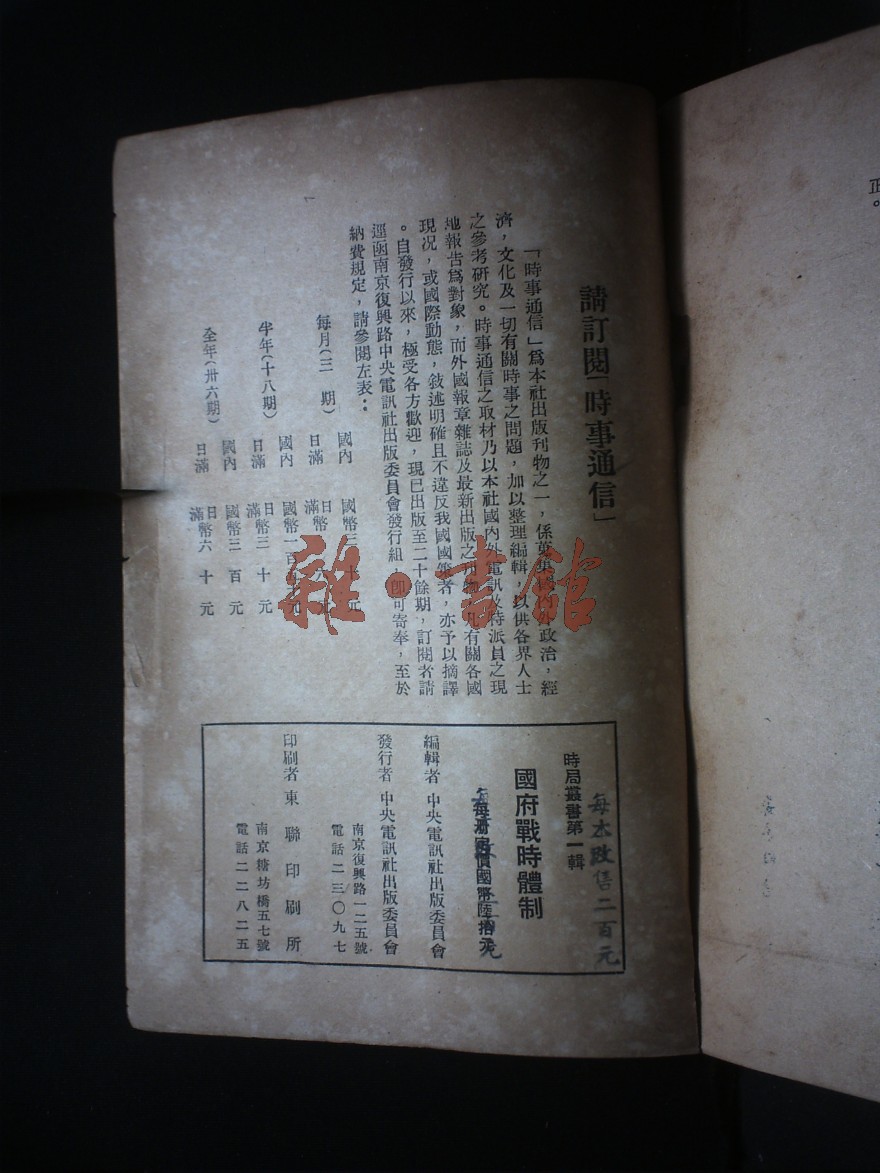 正。
請訂閱「時事通信」
「時事通信」爲本社出版刊物之一，係蒐集 政治，經
濟，文化及一切有關時事之問題，加以整理編輯，以供各界人士
之參考研究。時事通信之取材乃以本社國內外電訊 特派員之現
地報告爲對象，而外國報章雜誌及最新出版之刊物， 有關各國
現况，或國際動態，敍述明確且不違反我國國策者，亦予以摘譯
。自發行以來，極受各方歡迎，現已出版至二十餘期，訂閱者請
逕函南京復興路中央電訊社出版委員會發行組，卽可寄奉，至於
納費規定，請參閱左表：
每月（三　期） 國內 國幣三十元
日滿 日滿幣六 元
半年（十八期） 國內 國幣一百 元
日滿 日滿幣三十元
全年（卅六期） 國內 國幣三百元
日滿 日滿幣六十元
每本改售二百元
時局叢書第一輯
國府戰時體制
每册 價國幣陸拾元
編輯者 中央電訊社出版委員會
發行者 中央電訊社出版委員會
南京復興路一二五號
電話二三〇九七
印刷者 東聯印刷所
南京糖坊橋五七號
電話二二八二五
雜·書館